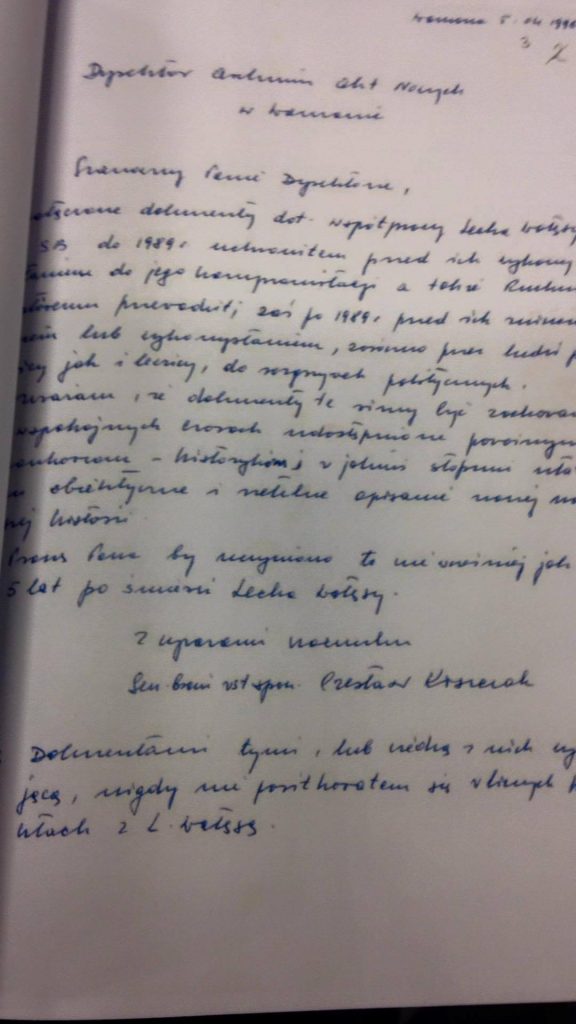 Warszawa 5. 04 1996
3 2
Dyrektor Archiwum Akt Nowych
w Warszawie
Szanowny Panie Dyrektorze,
ałączone dokumenty dot. współpracy Lecha Wałęsy
SB do 1989 r uchroniłem przed ich wykorzy
taniem do jego kompromitacji a także Ruchu
któremu przewodził; zaś po 1989 r przed ich
lub wykorzystaniem, zarówno przez ludzi
jak i lewicy, do rozgrywek politycznych.
Uważam, że dokumenty te winny być zachowane
w spokojnych czasach udostępnione poważnym
naukowcom – historykom i w jakimś stopniu
obiektywne i rzetelne opisanie naszej
historii.
Proszę Pana by uczyniono to nie wcześniej jak
5 lat po śmierci Lecha Wałęsy.
Z wyrazami szacunku
Gen. broni rst. spocz. Czesław Kiszczak
Dokumentami tymi, lub wiedzą z nich wy
jącą, nigdy nie posiłkowałem się w licznych
ktach z L. Wałęsą.